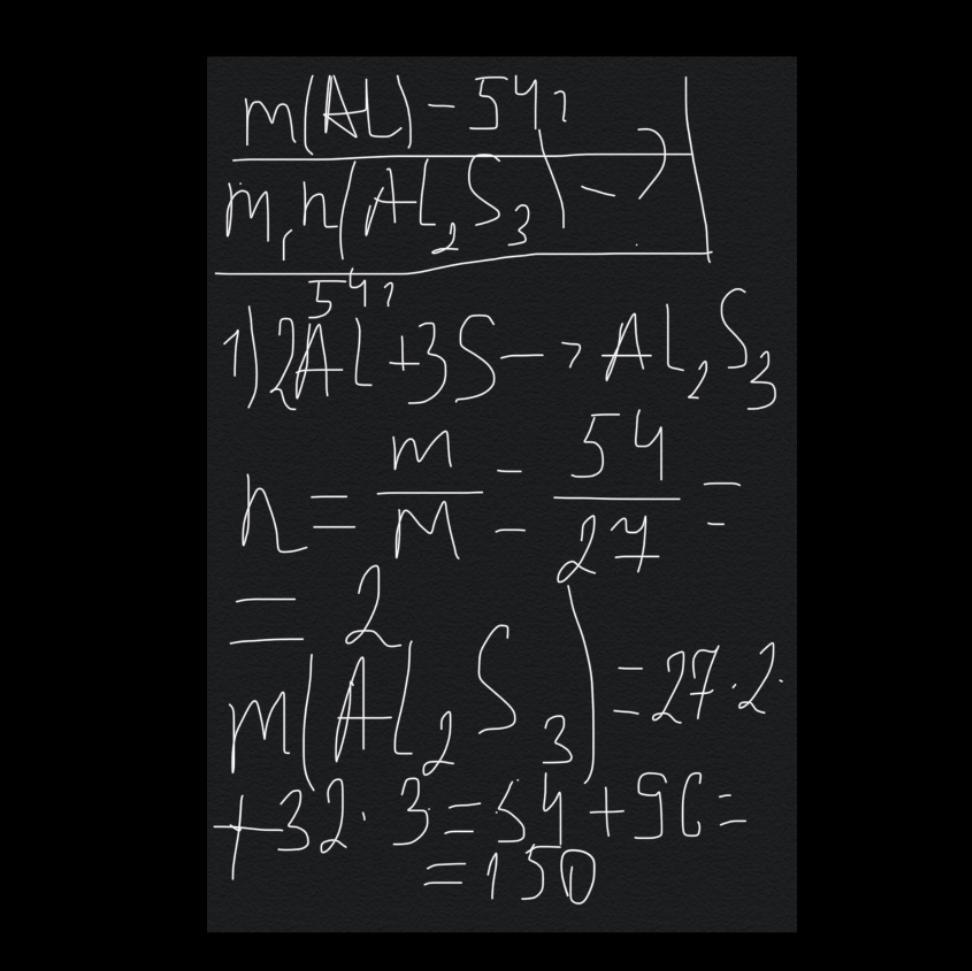 m(AL) - 54г
m, n(AL₂S₃) - ?
54г
1) 2AL + 3S -> AL₂S₃
n = m/M = 54/27 =
= 2
m(AL₂S₃) = 27·2·
+32·3 = 54 + 96 =
= 150